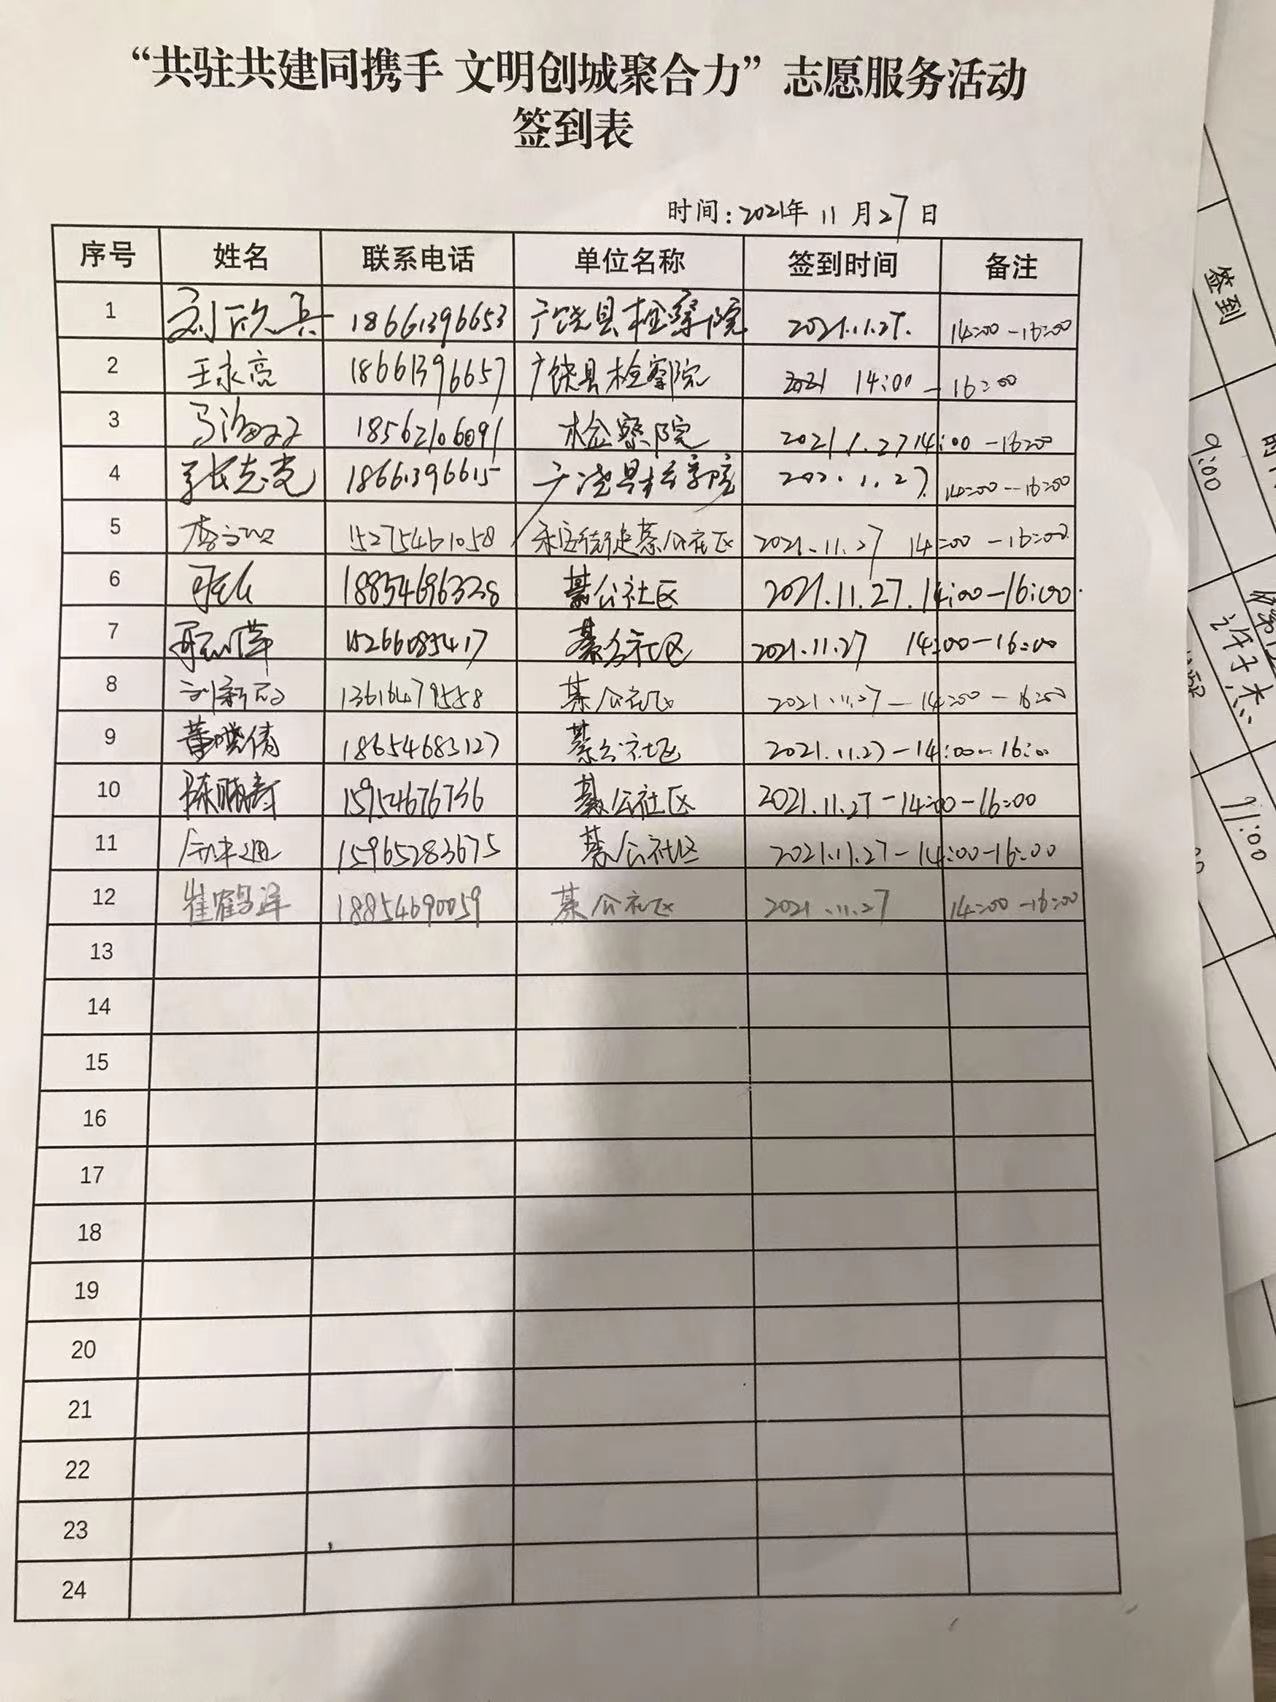 “共驻共建同携手 文明创城聚合力”志愿服务活动
签到表
时间:2021年 11 月 27 日
序号 姓名 联系电话 单位名称 签到时间 备注
1 刘欣兵 18661396653 广饶县检察院 2021.11.27. 14:00-16:00
2 王永亮 18661396657 广饶县检察院 2021 14:00-16:00
3 18562106091 检察院 2021.1.27 14:00-16:00
4 张志克 18661396615 广饶县检察院 202.1.27. 14:00-16:00
5 15275461058 綦公社区 2021.11.27 14:00-16:00
6 18854696328 綦公社区 2021.11.27. 14:00-16:00.
7 15266085417 綦公社区 2021.11.27 14:00-16:00
8 13616479558 綦公社区 2021.11.27-14:00-16:00
9 董晓倩 18654683127 綦公社区 2021.11.27-14:00-16:00
10 15954676736 綦公社区 2021.11.27-14:00-16:00
11 15965283675 綦公社区 2021.11.27-14:00-16:00
12 崔鹤洋 18854690059 綦公社区 2021.11.27 14:00-16:00
13
14
15
16
17
18
19
20
21
22
23
24
签到
9:00
许子杰
11:00